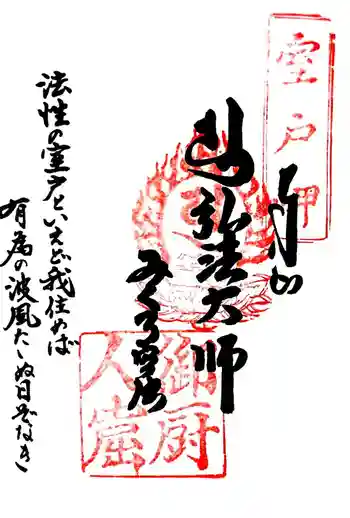 室戸岬
弘法大師
御厨
人窟
法性の室戸といえど我住めば
有為の波風たゝぬ日ぞなき